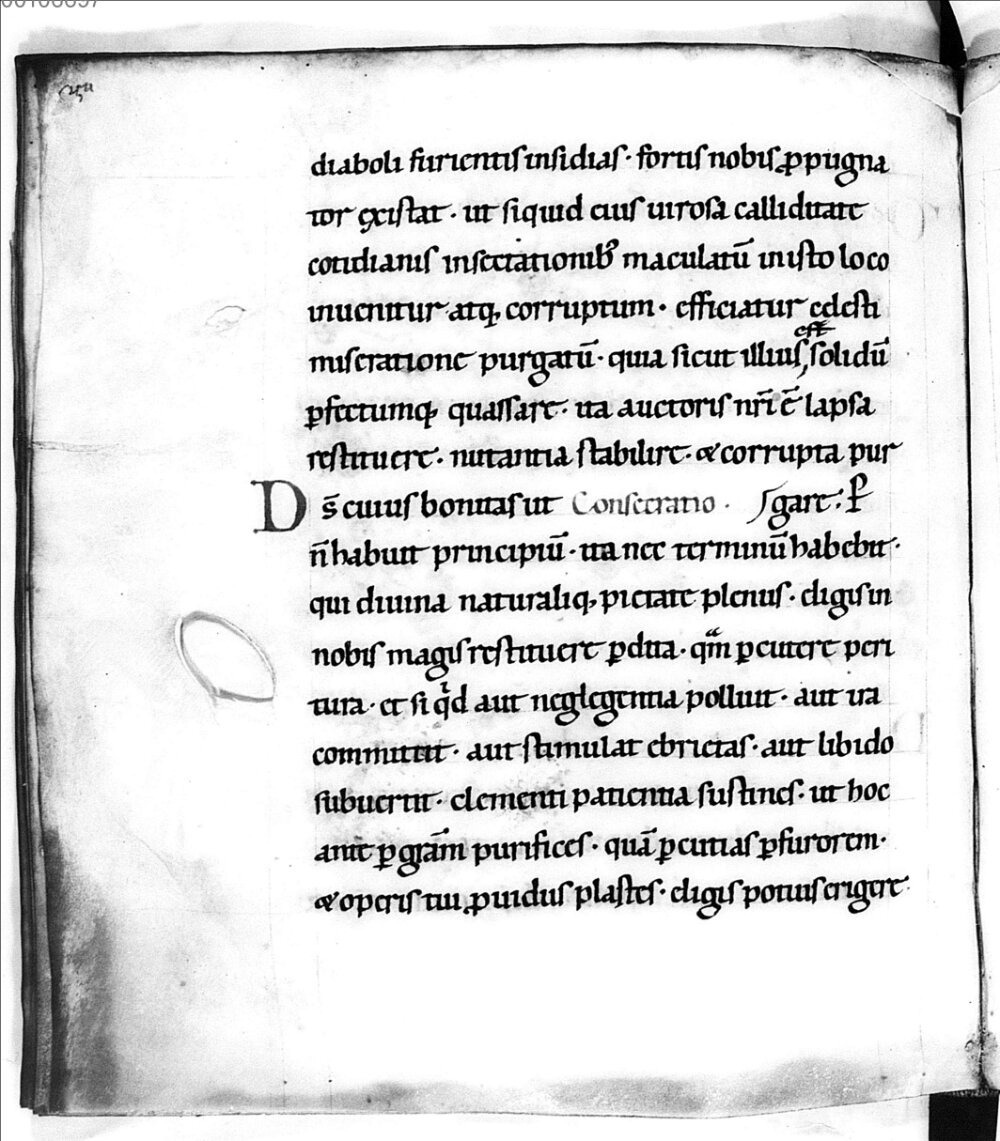 diaboli furientis insidias · fortis nobis ꝓpugna
tor existat · ut siquid eius uirosa calliditate
cotidianis insectationibꝰ maculatū inisto loco
inuenitur atq; corruptum · efficiatur celesti
miseratione purgatū · quia sicut illius, solidū
eſt
ꝑfectumq; quassare · ita auctoris nr̄i ē lapsa
restituere · nutantia stabilire · & corrupta pur
D s̄ cuius bonitas ut Consecratio · gare : P̄
n̄ habuit principiū · ita nec terminū habebit ·
qui diuina naturaliq; pietate plenus · eligis in
nobis magis restituere ꝑdita · qm̄ ꝑcutere peri
tura · et si qd aut neglegentia polluit · aut ira
committit · aut stimulat ebrietas · aut libido
subuertit · clementi patientia sustines · ut hoc
ante ꝑ grām purifices · quā ꝑcutias ꝑ furorem ·
& operis tui ꝓuidus plastes · eligis potius erigere ·